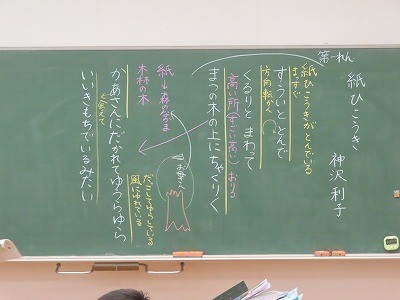 第一れん
紙ひこうき
神沢利子
紙ひこうきがとんでいる
まっすぐ
すういととんで
方向転かん
くるりと まわって
高い所(すごい高い) おりる
まつの木の上にちゃくりく
お母さん
紙←森のなかま
木 林の木
だっこしてゆらしている
風にゆれている
かあさんにだかれてゆうらゆら
会えて
いいきもちでいるみたい